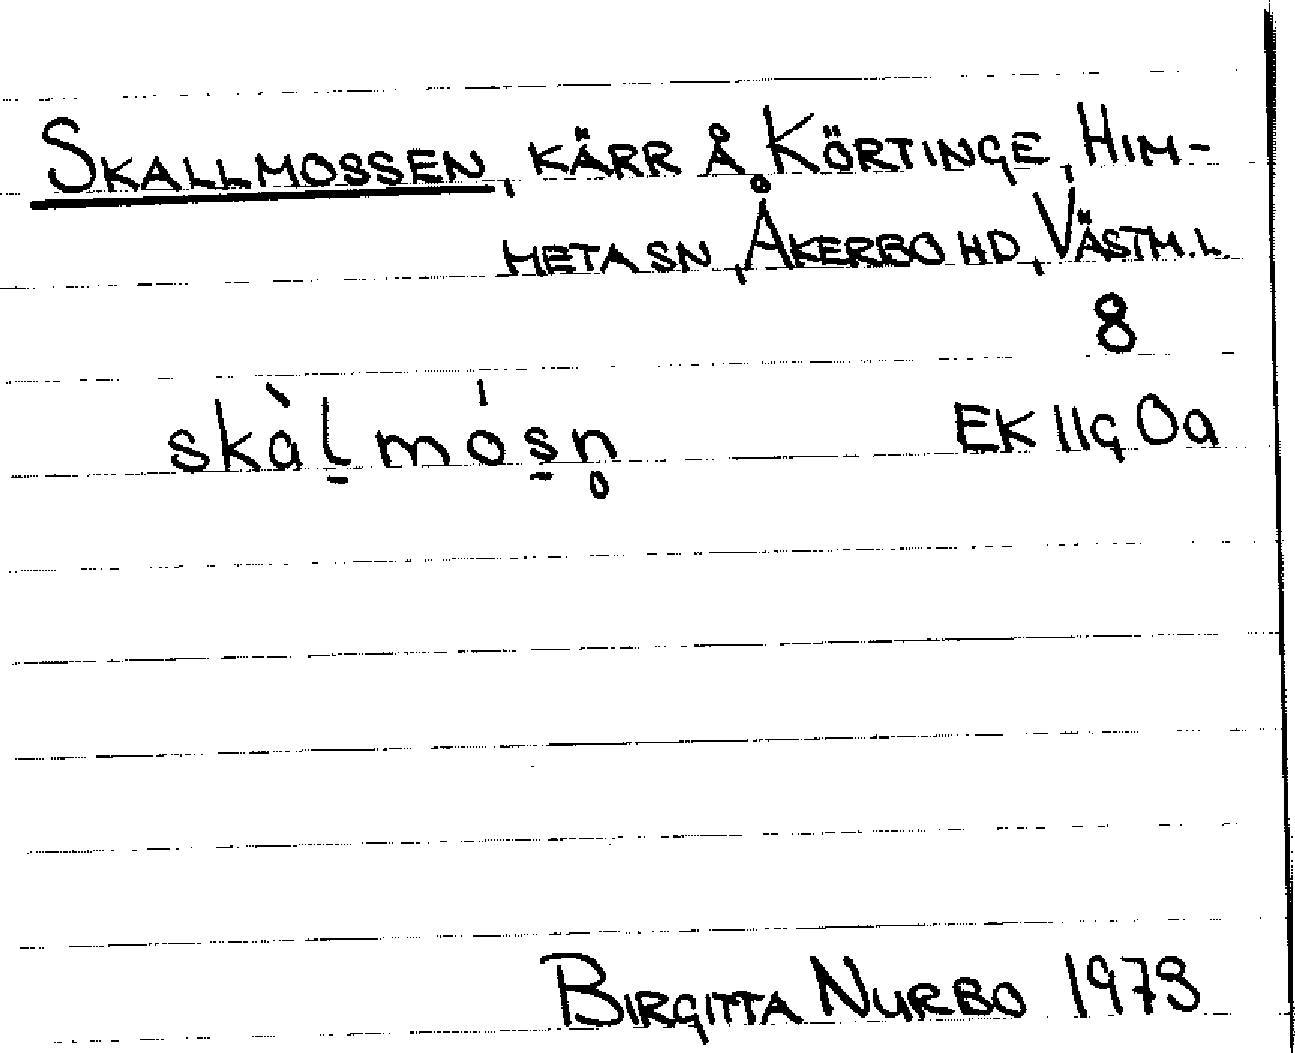 SKALLMOSSEN, KÄRR Å KÖRTINGE, HIM-
META SN, ÅKERBO HD, VÄSTM.L.
8
skàl̠mós̠n̥ EK 11g 0a
BIRGITTA NURBO 1973